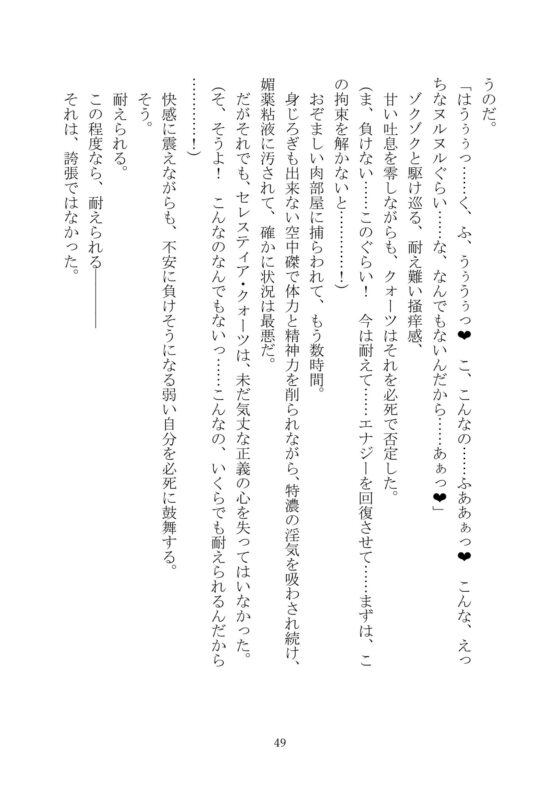 うのだ。
「はうぅぅっ……く、ふ、うぅうぅっ❤　こ、こんなの……ふああぁっ❤　こんな、えっ
ちなヌルヌルぐらい……な、なんでもないんだから……あぁっ❤」
　ゾクゾクと駆け巡る、耐え難い掻痒感、
　甘い吐息を零しながらも、クォーツはそれを必死で否定した。
(ま、負けない……このぐらい！　今は耐えて……エナジーを回復させて……まずは、こ
の拘束を解かないと…………！)
　おぞましい肉部屋に捕らわれて、もう数時間。
　身じろぎも出来ない空中磔で体力と精神力を削られながら、特濃の淫気を吸わされ続け、
媚薬粘液に汚されて、確かに状況は最悪だ。
　だがそれでも、セレスティア・クォーツは、未だ気丈な正義の心を失ってはいなかった。
(そ、そうよ！　こんなのなんでもないっ……こんなの、いくらでも耐えられるんだから
…………！)
　快感に震えながらも、不安に負けそうになる弱い自分を必死に鼓舞する。
　そう。
　耐えられる。
　この程度なら、耐えられる――――
　それは、誇張ではなかった。
49